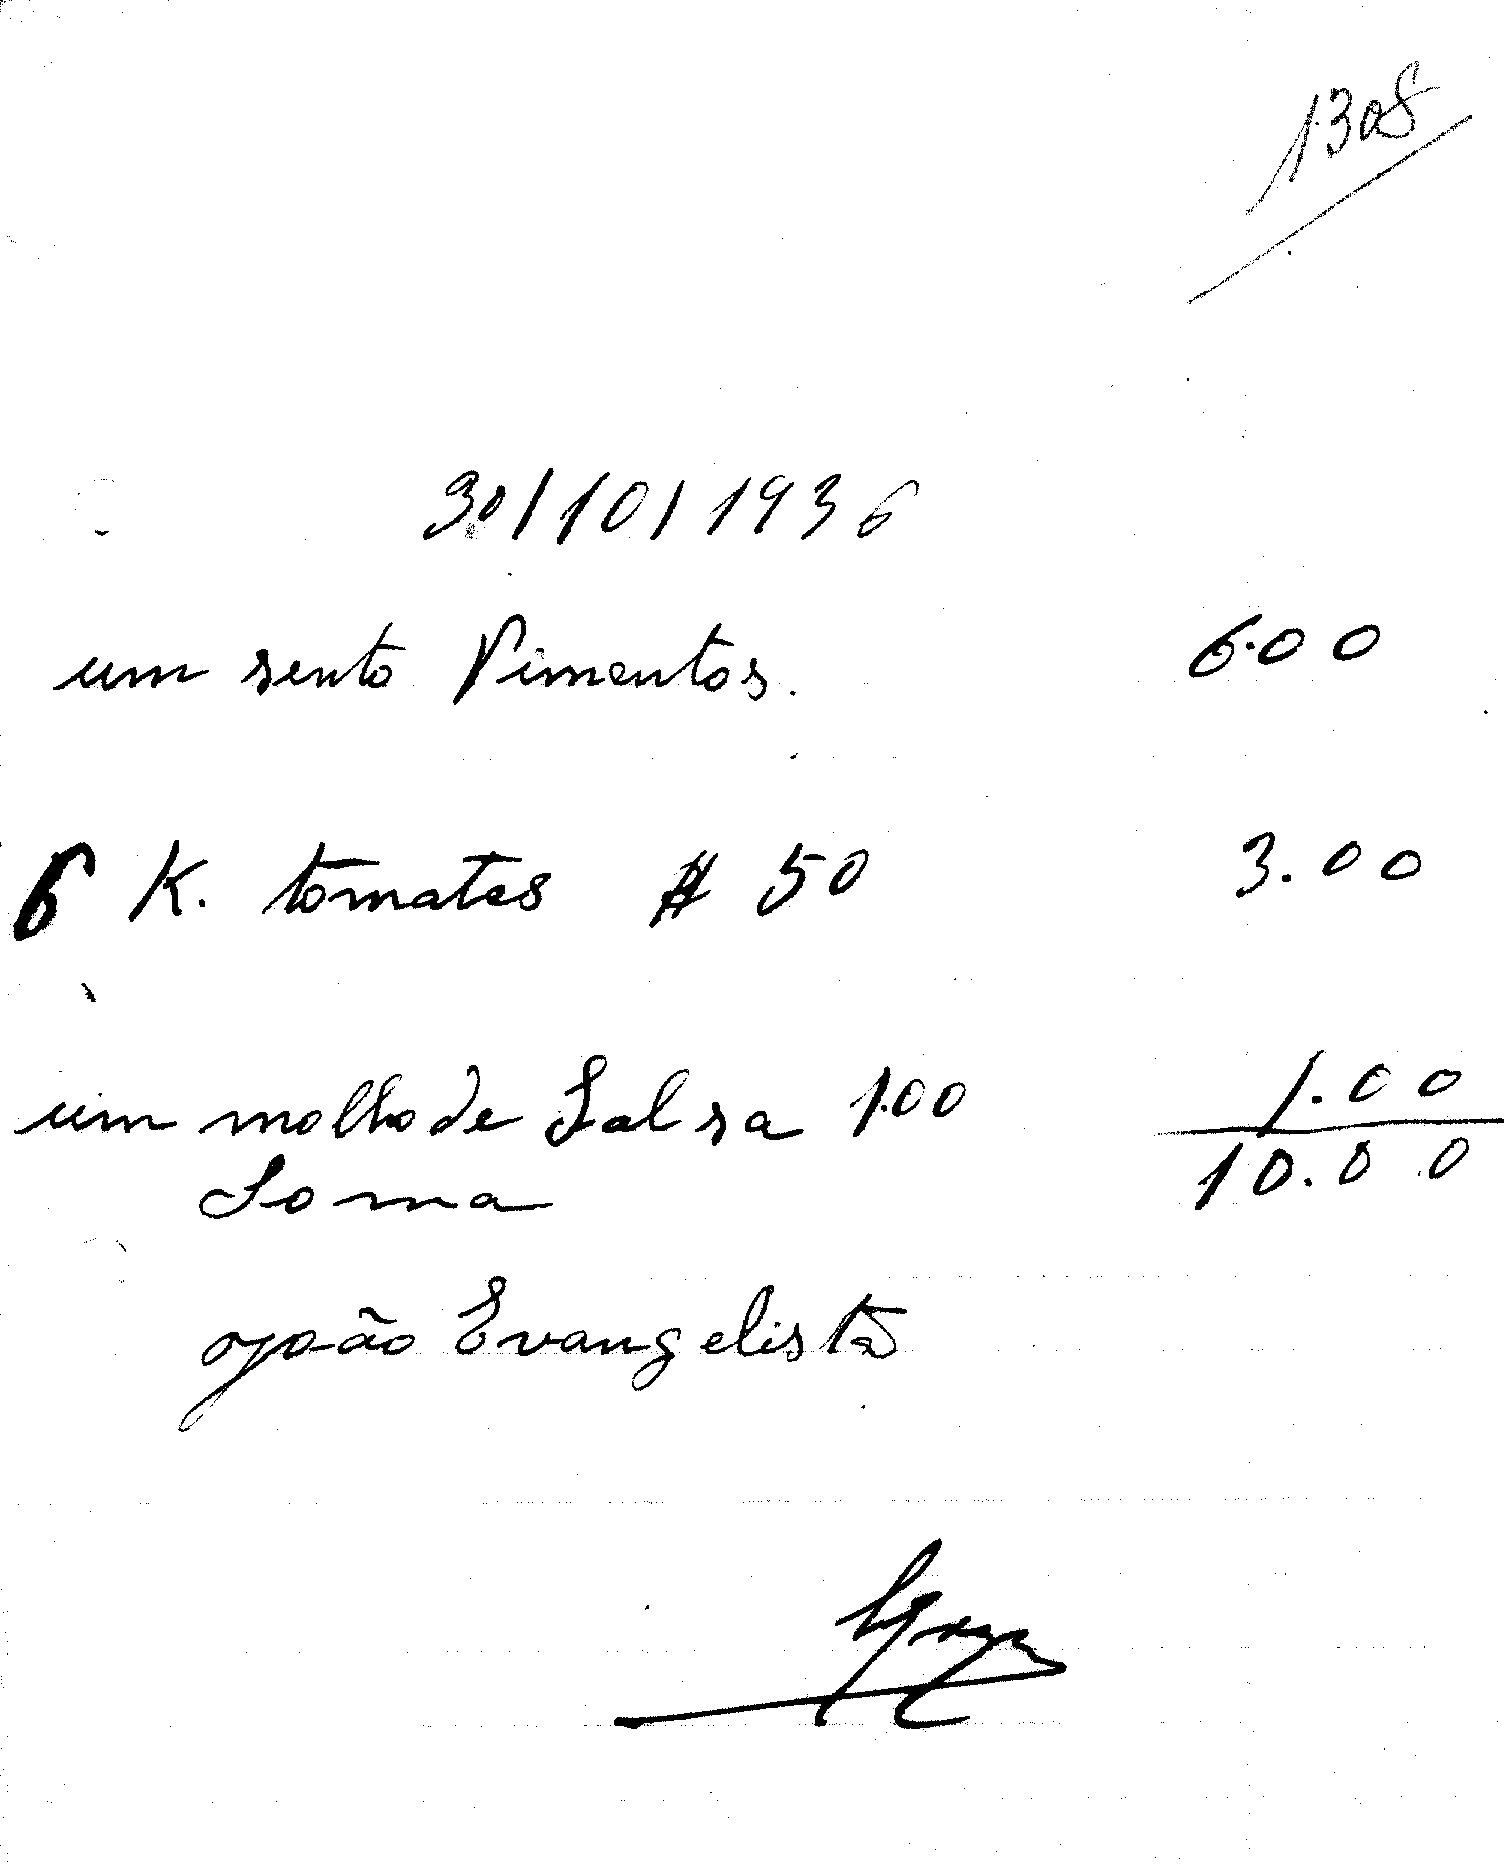 1308
30/10/1936
um sento Pimentos. 6.00
6 K. tomates # 50 3.00
um molho de Salsa 1.00 1.00
Soma 10.00
João Evangelista